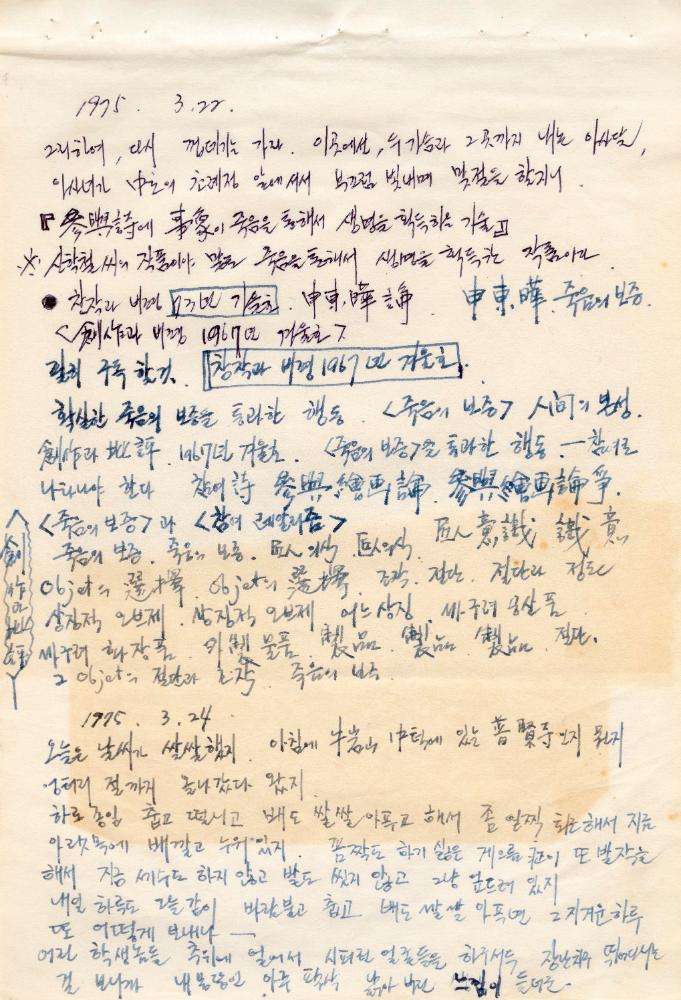 1975. 3.22.
그리하여, 다시 껍데기는 가라. 이곳에선, 두 가슴과 그곳까지 내논 아사달,
아사녀가 中立의 초례청 앞에 서서 부끄럼 빛내며 맞절을 할지니.
『參與詩에 事象이 죽음을 통해서 생명을 획득하는 기술』
※ 신학철 씨의 작품이야 말로 죽음을 통해서 생명을 획득한 작품이다
● 창작과 비평 년 가을호. 申東曄 論 申東曄. 죽음의 보증.
<創作과 비평 1967년 겨울호>.
필히 구독 할것. 창작과 비평 1967년 겨울호.
확실한 죽음의 보증을 통과한 행동. <죽음의 보증> 人間의 본성.
創作과 批評. 1967년 겨울호. <죽음의 보증>을 통과한 행동. — 참여로
나타나야 한다 참여 詩 參與 繪画論 參與繪画論爭.
<죽음의 보증>과 <참여 레알리즘>
創作과 批評
죽음의 보증. 죽음의 보증. 匠人 의식. 匠人의식. 匠人 意識 識 意
objet의 選擇. objet의 選擇. 조작. 절단. 절단과 정도
상징적 오브제. 상징적 오브제 어느 상징. 싸구려 공산품.
싸구려 화장품. 外製 물품. 製品. 製品. 製品. 절단.
그 objet의 절단과 조작. 죽음의 보증.
1975. 3.24
오늘은 날씨가 쌀쌀했지. 아침에 牛岩山 中턱에 있는 普賢寺 인지 뭔지
엉터리 절까지 올라갔다 왔지.
하로 종일 춥고 떨리고 배도 쌀쌀 아프고 해서 좀 일찍 퇴근해서 지금
아랫목에 배깔고 누워 있지. 꼼짝도 하기 싫은 게으름 症이 또 발작을
해서 지금 세수도 하지 않고 발도 씻지 않고 그냥 엎드려 있지
내일 하루도 오늘 같이 바람불고 춥고 배도 쌀쌀 아프면 그 지겨운 하루
또 어떻게 보내나 —
어린 학생놈들 추위에 얼어서 시퍼런 얼굴들을 하구서두 장난치며 떠는
걸 보니까 내 아주 팍삭 늙어 버린 느낌이 들더군.